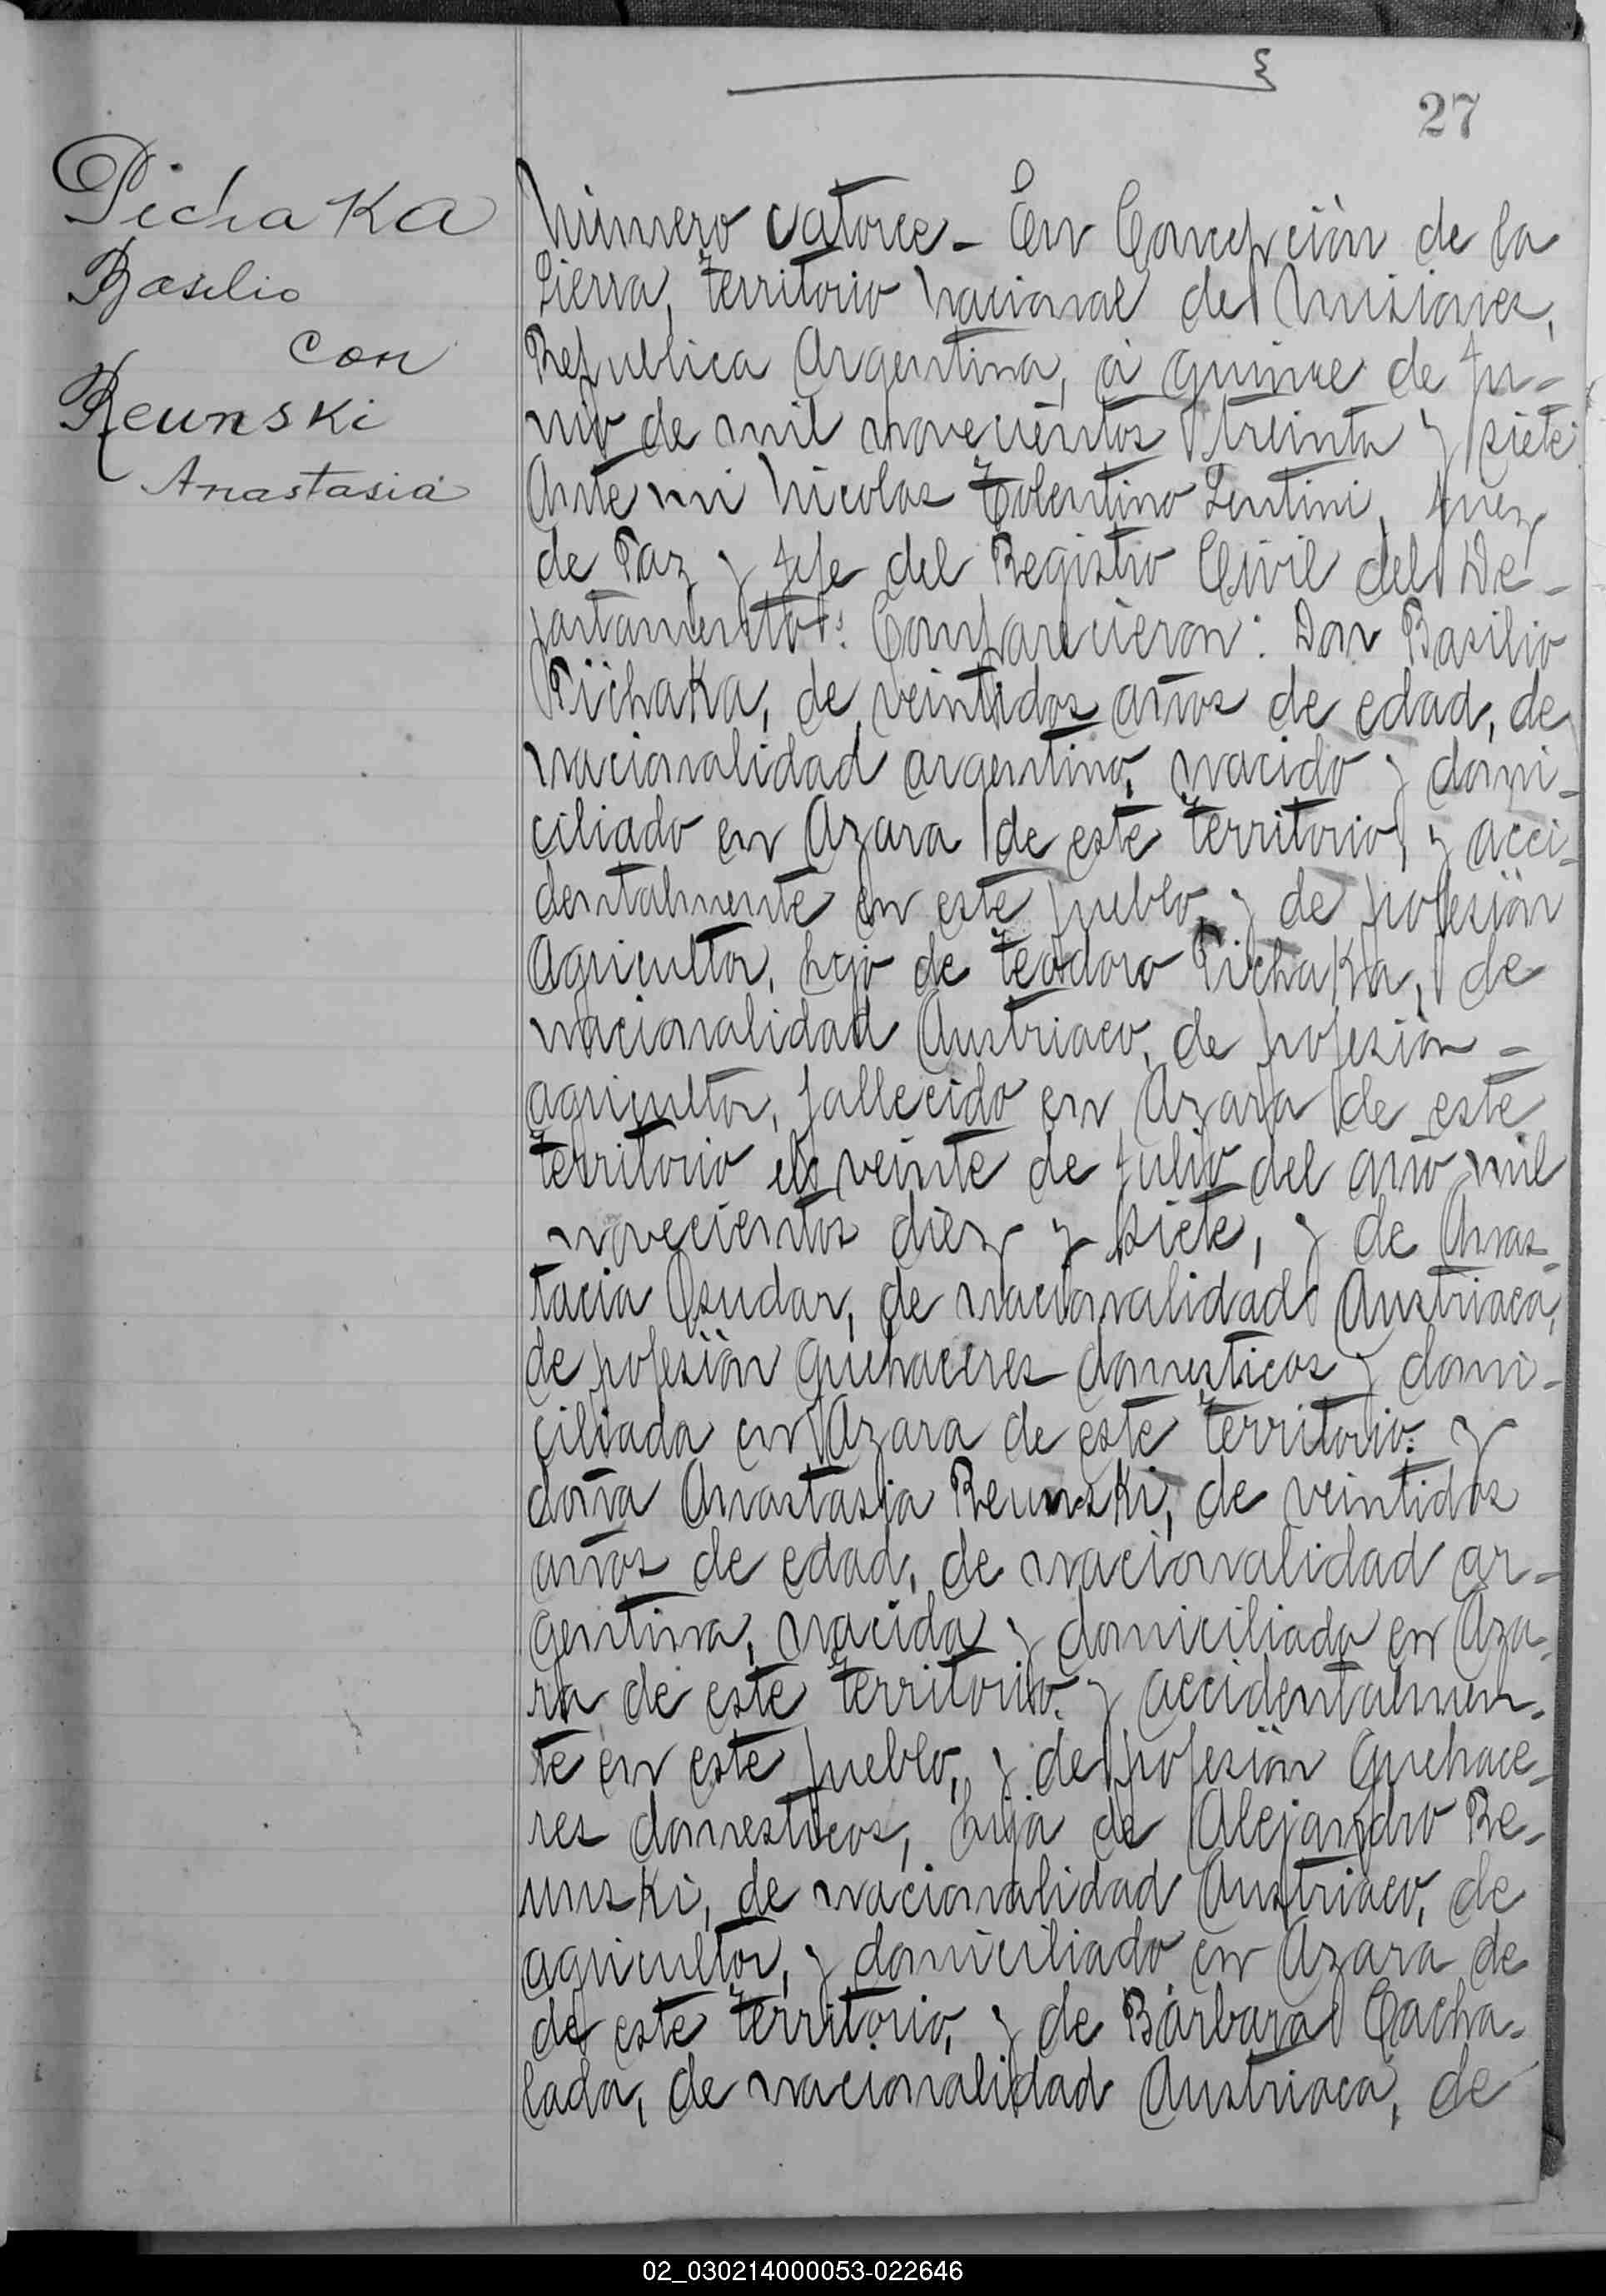 27
Pichaka
Basilio
con
Reunski
Anastasia
Número catorce - En Concepción de la
Sierra, territorio nacional de Misiones,
Republica Argentina, á quince de Ju-
nio de mil novecientos treinta y siete
Ante mi Nicolas Tolentino Lentini, Juez
de Paz y Jefe del Registro Civil del De-
partamento: Comparecieron: Don Basilio
Pichaka, de veintidos años de edad, de
nacionalidad argentino, nacido y domi-
ciliado en Azara de este territorio, y acci-
dentalmente en este pueblo, y de profesión
Agricultor, hijo de Teodoro Pichaka, de
nacionalidad Austriaco, de profesión -
agricultor, fallecido en Azara de este
territorio el veinte de Julio del año mil
novecientos diez y siete, y de Anas-
tacia Osudar, de nacionalidad Austriaca,
de profesión quehaceres domesticos y domi-
ciliada en Azara de este territorio: y
doña Anastasia Reunski, de veintidos
años de edad, de nacionalidad ar-
gentina, nacida y domiciliada en Aza-
ra de este territorio y accidentalmen-
te en este pueblo, y de profesión quehace-
res domesticos, hija de Alejandro Re-
unski, de nacionalidad Austriaco, de
agricultor, y domiciliado en Azara de
de este territorio, y de Bárbara Cacha-
lada, de nacionalidad Austriaca, de
02_030214000053-022646